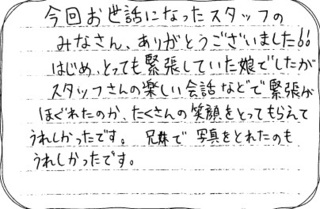 今回お世話になったスタッフの
みなさん、ありがとうございました!!
はじめ、とっても緊張していた娘でしたが
スタッフさんの楽しい会話などで緊張が
ほぐれたのか、たくさんの笑顔をとってもらえて
うれしかったです。 兄妹で写真をとれたのも
うれしかったです。